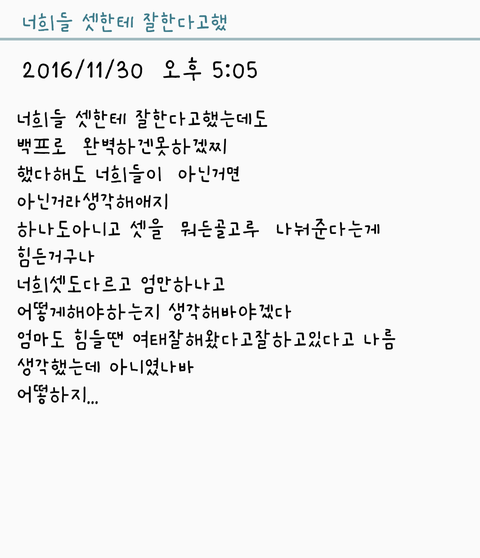 너희들 셋한테 잘한다고했
2016/11/30 오후 5:05
너희들 셋한테 잘한다고했는데도
백프로 완벽하겐못하겠찌
했다해도 너희들이 아닌거면
아닌거라생각해애지
하나도아니고 셋을 뭐든골고루 나눠준다는게
힘든거구나
너희셋도다르고 엄만하나고
어떻게해야하는지 생각해바야겠다
엄마도 힘들땐 여태잘해왔다고잘하고있다고 나름
생각했는데 아니였나바
어떻하지...